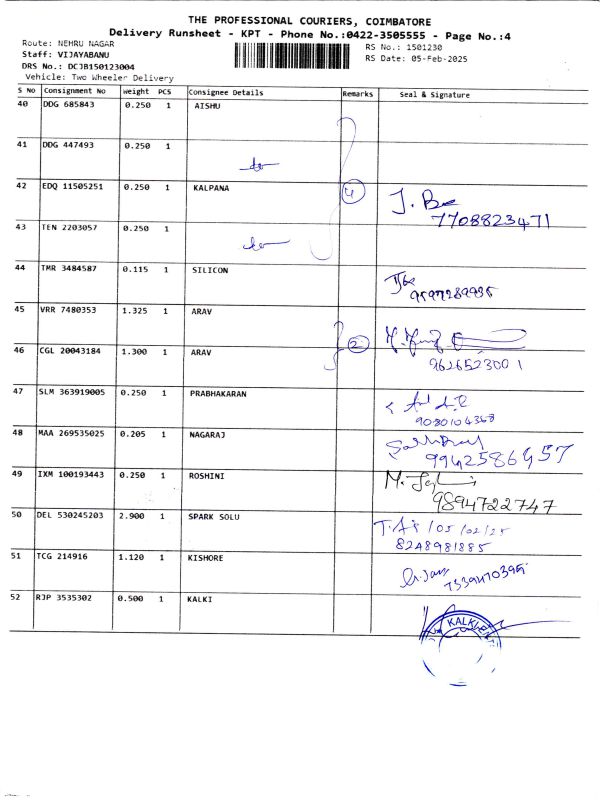 THE PROFESSIONAL COURIERS, COIMBATORE
Delivery Runsheet - KPT - Phone No.:0422-3505555 - Page No.:4
Route: NEHRU NAGAR
RS No.: 1501230
Staff: VIJAYABANU
RS Date: 05-Feb-2025
DRS No.: DCJB150123004
Vehicle: Two Wheeler Delivery
S No Consignment No Weight PCS Consignee Details Remarks Seal & Signature
40 DDG 685843 0.250 1 AISHU
41 DDG 447493 0.250 1
42 EDQ 11505251 0.250 1 KALPANA 4
7708823471
43 TEN 2203057 0.250 1
44 TMR 3484587 0.115 1 SILICON
45 VRR 7480353 1.325 1 ARAV
2
46 CGL 20043184 1.300 1 ARAV
9626523001
47 SLM 363919005 0.250 1 PRABHAKARAN
9080104368
48 MAA 269535025 0.205 1 NAGARAJ
9942586457
49 IXM 100193443 0.250 1 ROSHINI
9894722747
50 DEL 530245203 2.900 1 SPARK SOLU
/05/02/25
8248981885
51 TCG 214916 1.120 1 KISHORE
7339470395
52 RJP 3535302 0.500 1 KALKI
KALKI